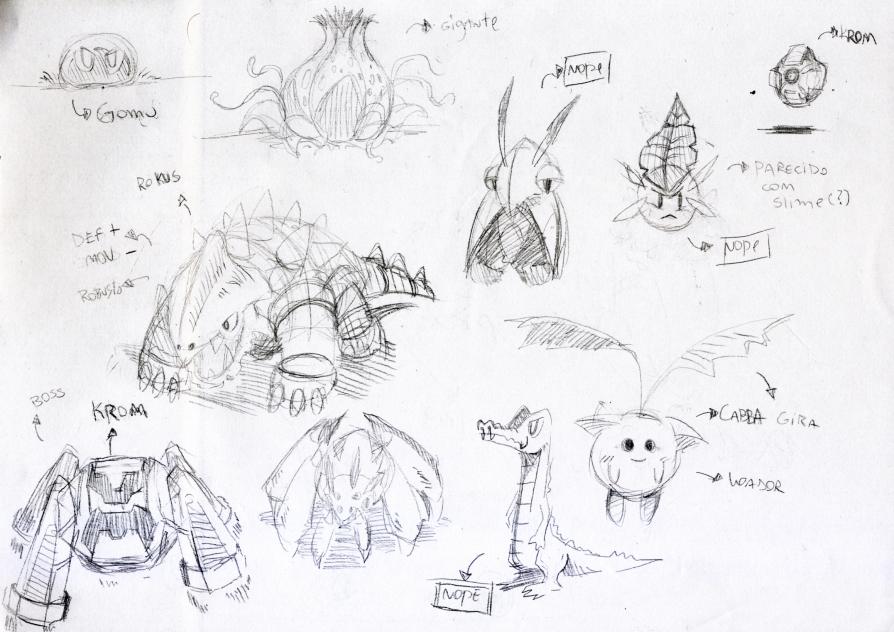 Gomu
Gigante
Nope
KROM
PARECIDO
COM
Slime(?)
Nope
ROKUS
DEF +
MOV -
Robusto
BOSS
KROM
CABRA GIRA
VOADOR
NOPE